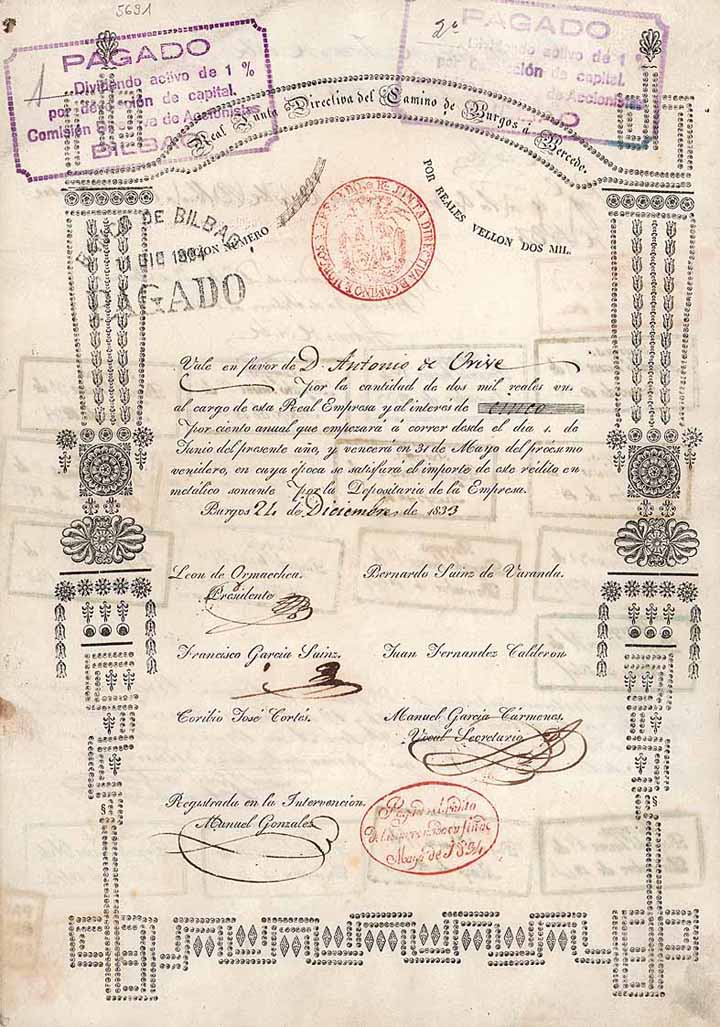 5691
PAGADO
1 Dividendo activo de 1 %
por devolución de capital.
Comisión de Accionistas
BILBAO
2º
PAGADO
Dividendo activo de 1 %
por capital.
de Accionistas
Real Junta Directiva del Camino de Burgos á Bercedo.
BANCO DE BILBAO
DIC 1894
PAGADO
ACCION NUMERO
POR REALES VELLON DOS MIL.
Rl. JUNTA DIRECTIVA D. CAMINO D. BURGOS A BERCEDO
Vale en favor de D. Antonio de Orive
Por la cantidad de dos mil reales vn.
al cargo de esta Real Empresa y al interés de cinco
Por ciento anual que empezará á correr desde el dia 1. de
Junio del presente año, y vencerá en 31 de Mayo del prócsimo
venidero, en cuya época se satisfará el importe de este redito en
metálico sonante Por la Depositaria de la Empresa.
Burgos 24 de Diciembre de 1833
Leon de Ormaechea.
Presidente
Bernardo Sainz de Varanda.
Francisco Garcia Sainz.
Juan Fernandez Calderon
Corilio José Cortés.
Manuel Garcia Cármenes.
Vocal Secretario
Registrada en la Intervencion.
Manuel Gonzalez
Pagado el rédito
Mayo de 1834